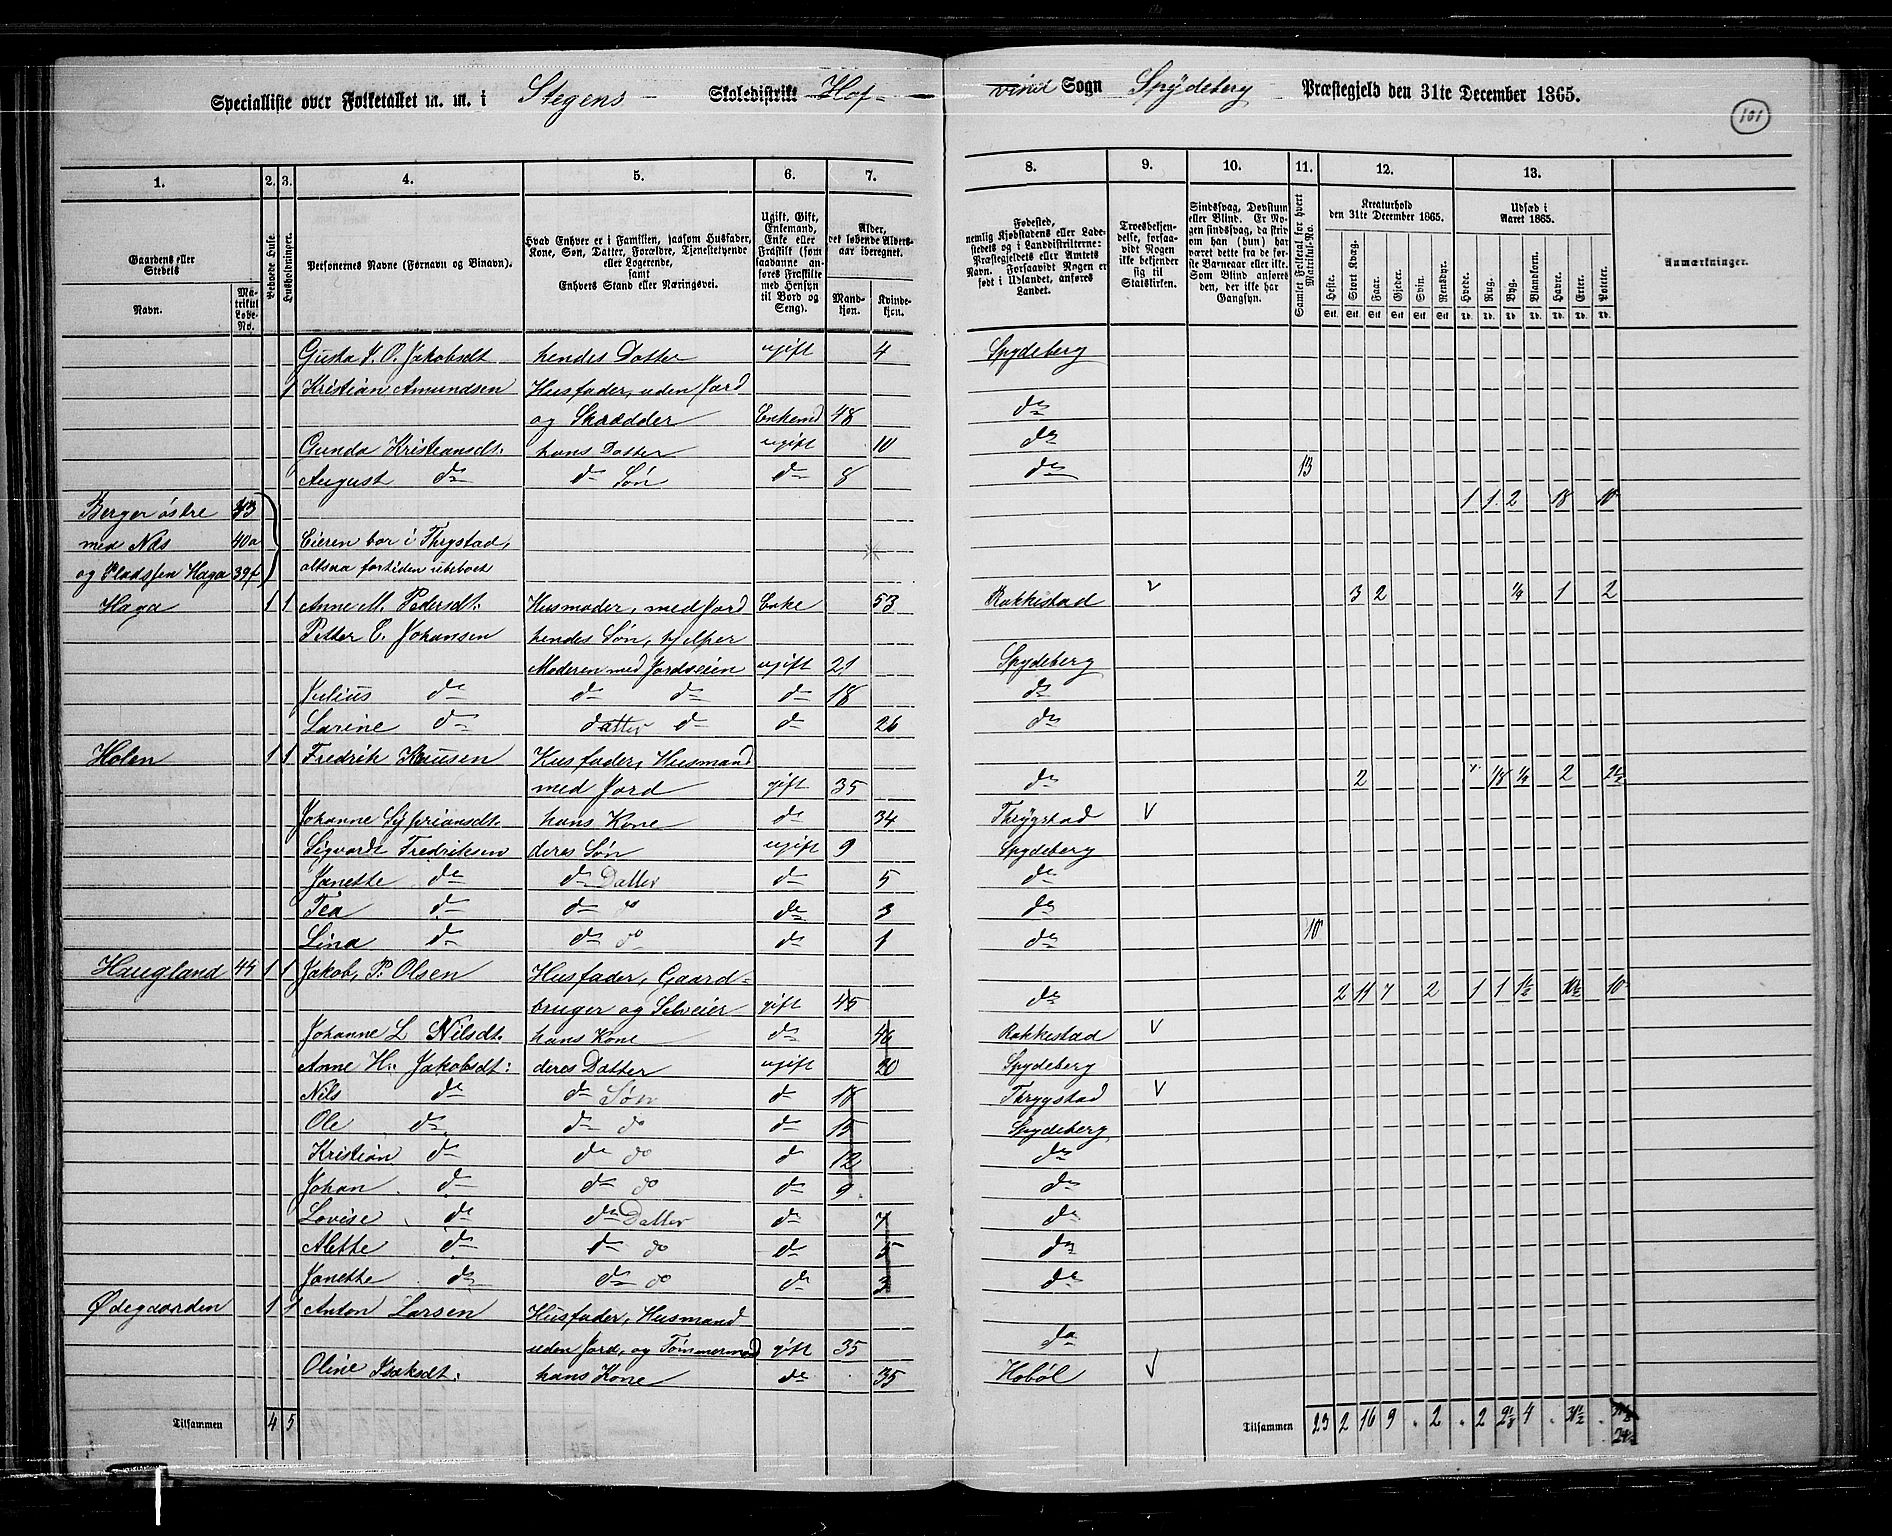 Specialliste over Folketallet m. m. i Stegens Skoledistrikt Hof- vind Sogn Spydeberg Præstegjeld den 31te December 1865.
101
1. 2. 3. 4. 5. 6. 7. 8. 9. 10. 11. 12. 13.
Gaardens eller Stedets
Navn. Matrikul Løbe-No.
Beboede Huse.
Husholdninger.
Personernes Navne (Fornavn og Binavn).
Hvad Enhver er i Familien, saasom Husfader, Kone, Søn, Datter, Forældre, Tjenestetyende eller Logerende, samt Enhvers Stand eller Næringsvei.
Ugift, Gift, Enkemand, Enke eller Fraskilt (som saadanne anføres Fraskilte med Hensyn til Bord og Seng).
Alder, det løbende Aldersaar iberegnet.
Mandkjøn. Kvindekjøn.
Fødested, nemlig Kjøbstadens eller Ladestedets og i Landdistrikterne: Præstegjeldets eller Amtets Navn. Forsaavidt Nogen er født i Udlandet, anføres Landet.
Troesbekjendelse, forsaavidt Nogen ikke bekjender sig til Statskirken.
Sindssvag, Døvstum eller Blind. Er Nogen sindssvag, da striv om han (hun) har været dette fra de første Barneaar eller ikke. Som Blind anføres den, der ikke har Gangsyn.
Samlet Folketal for hvert Matrikul-No.
Kreaturhold den 31te December 1865.
Heste. Stort Kvæg. Faar. Gjeder. Svin. Rensdyr.
Udsæd i Aaret 1865.
Hvede. Rug. Byg. Blandkorn. Havre. Erter. Poteter.
Anmærkninger.
Gusta J. O. Jakobsdt hendes Datter ugift 4 Spydeberg
1 Kristian Amundsen Husfader, uden Jord
og Skrædder Enkemd 48 do
Gunda Kristiansdt: hans Datter ugift 10 do
August do do Søn do 8 do 13
Berger østre 33 1 1 2 18 10
med Næs 40a Eieren bor i Thrygstad,
og Pladsfen Haga 39f altsaa fortiden ubeboet
Haga 1 1 Anne M. Pedersdt: Husmoder, med Jord Enke 53 Rakkestad v 3 2 1/4 1 2
Petter C. Johansen hendes Søn, hjelper
Moderen med Jordveien ugift 21 Spydeberg
Julius do do do do 18 do
Larine do datter do do 26 do
Holen 1 1 Fredrik Knusen Husfader, Husmand
med Jord gift 35 do 2 1/8 1/4 2 2 1/2
Johanne Syferiansdt. hans Kone do 34 Thrygstad V
Sigvardt Fredriksen deres Søn ugift 9 Spydeberg
Janette do do Datter do 5 do
Tea do do do do 3 do
Lina do do do do 1 do 10
Haugland 44 1 1 Jakob, P. Olsen Husfader, Gaard-
bruger og Selveier gift 45 do 2 11 7 2 1 1 1 1/2 10 1/2 10
Johanne L Nilsdt. hans Kone do 46 Rakkestad V
Anne H: Jakobsdt: deres Datter ugift 20 Spydeberg
Nils do do Søn do 18 Thrygstad V
Ole do do do do 15 Spydeberg
Kristian do do do do 12 do
Johan do do do do 9 do
Lovise do do Datter do 7 do
Alette do do do do 5 do
Janette do do do do 3 do
Ødegaarden 1 1 Anton Larsen Husfader, Husmand
uden Jord, og Tømmermand gift 35 do
Oline Isaksdt: hans Kone do 35 Hobøl V
Tilsammen 4 5 Tilsammen 23 2 16 9 2 2 2 1/8 4 31 1/2